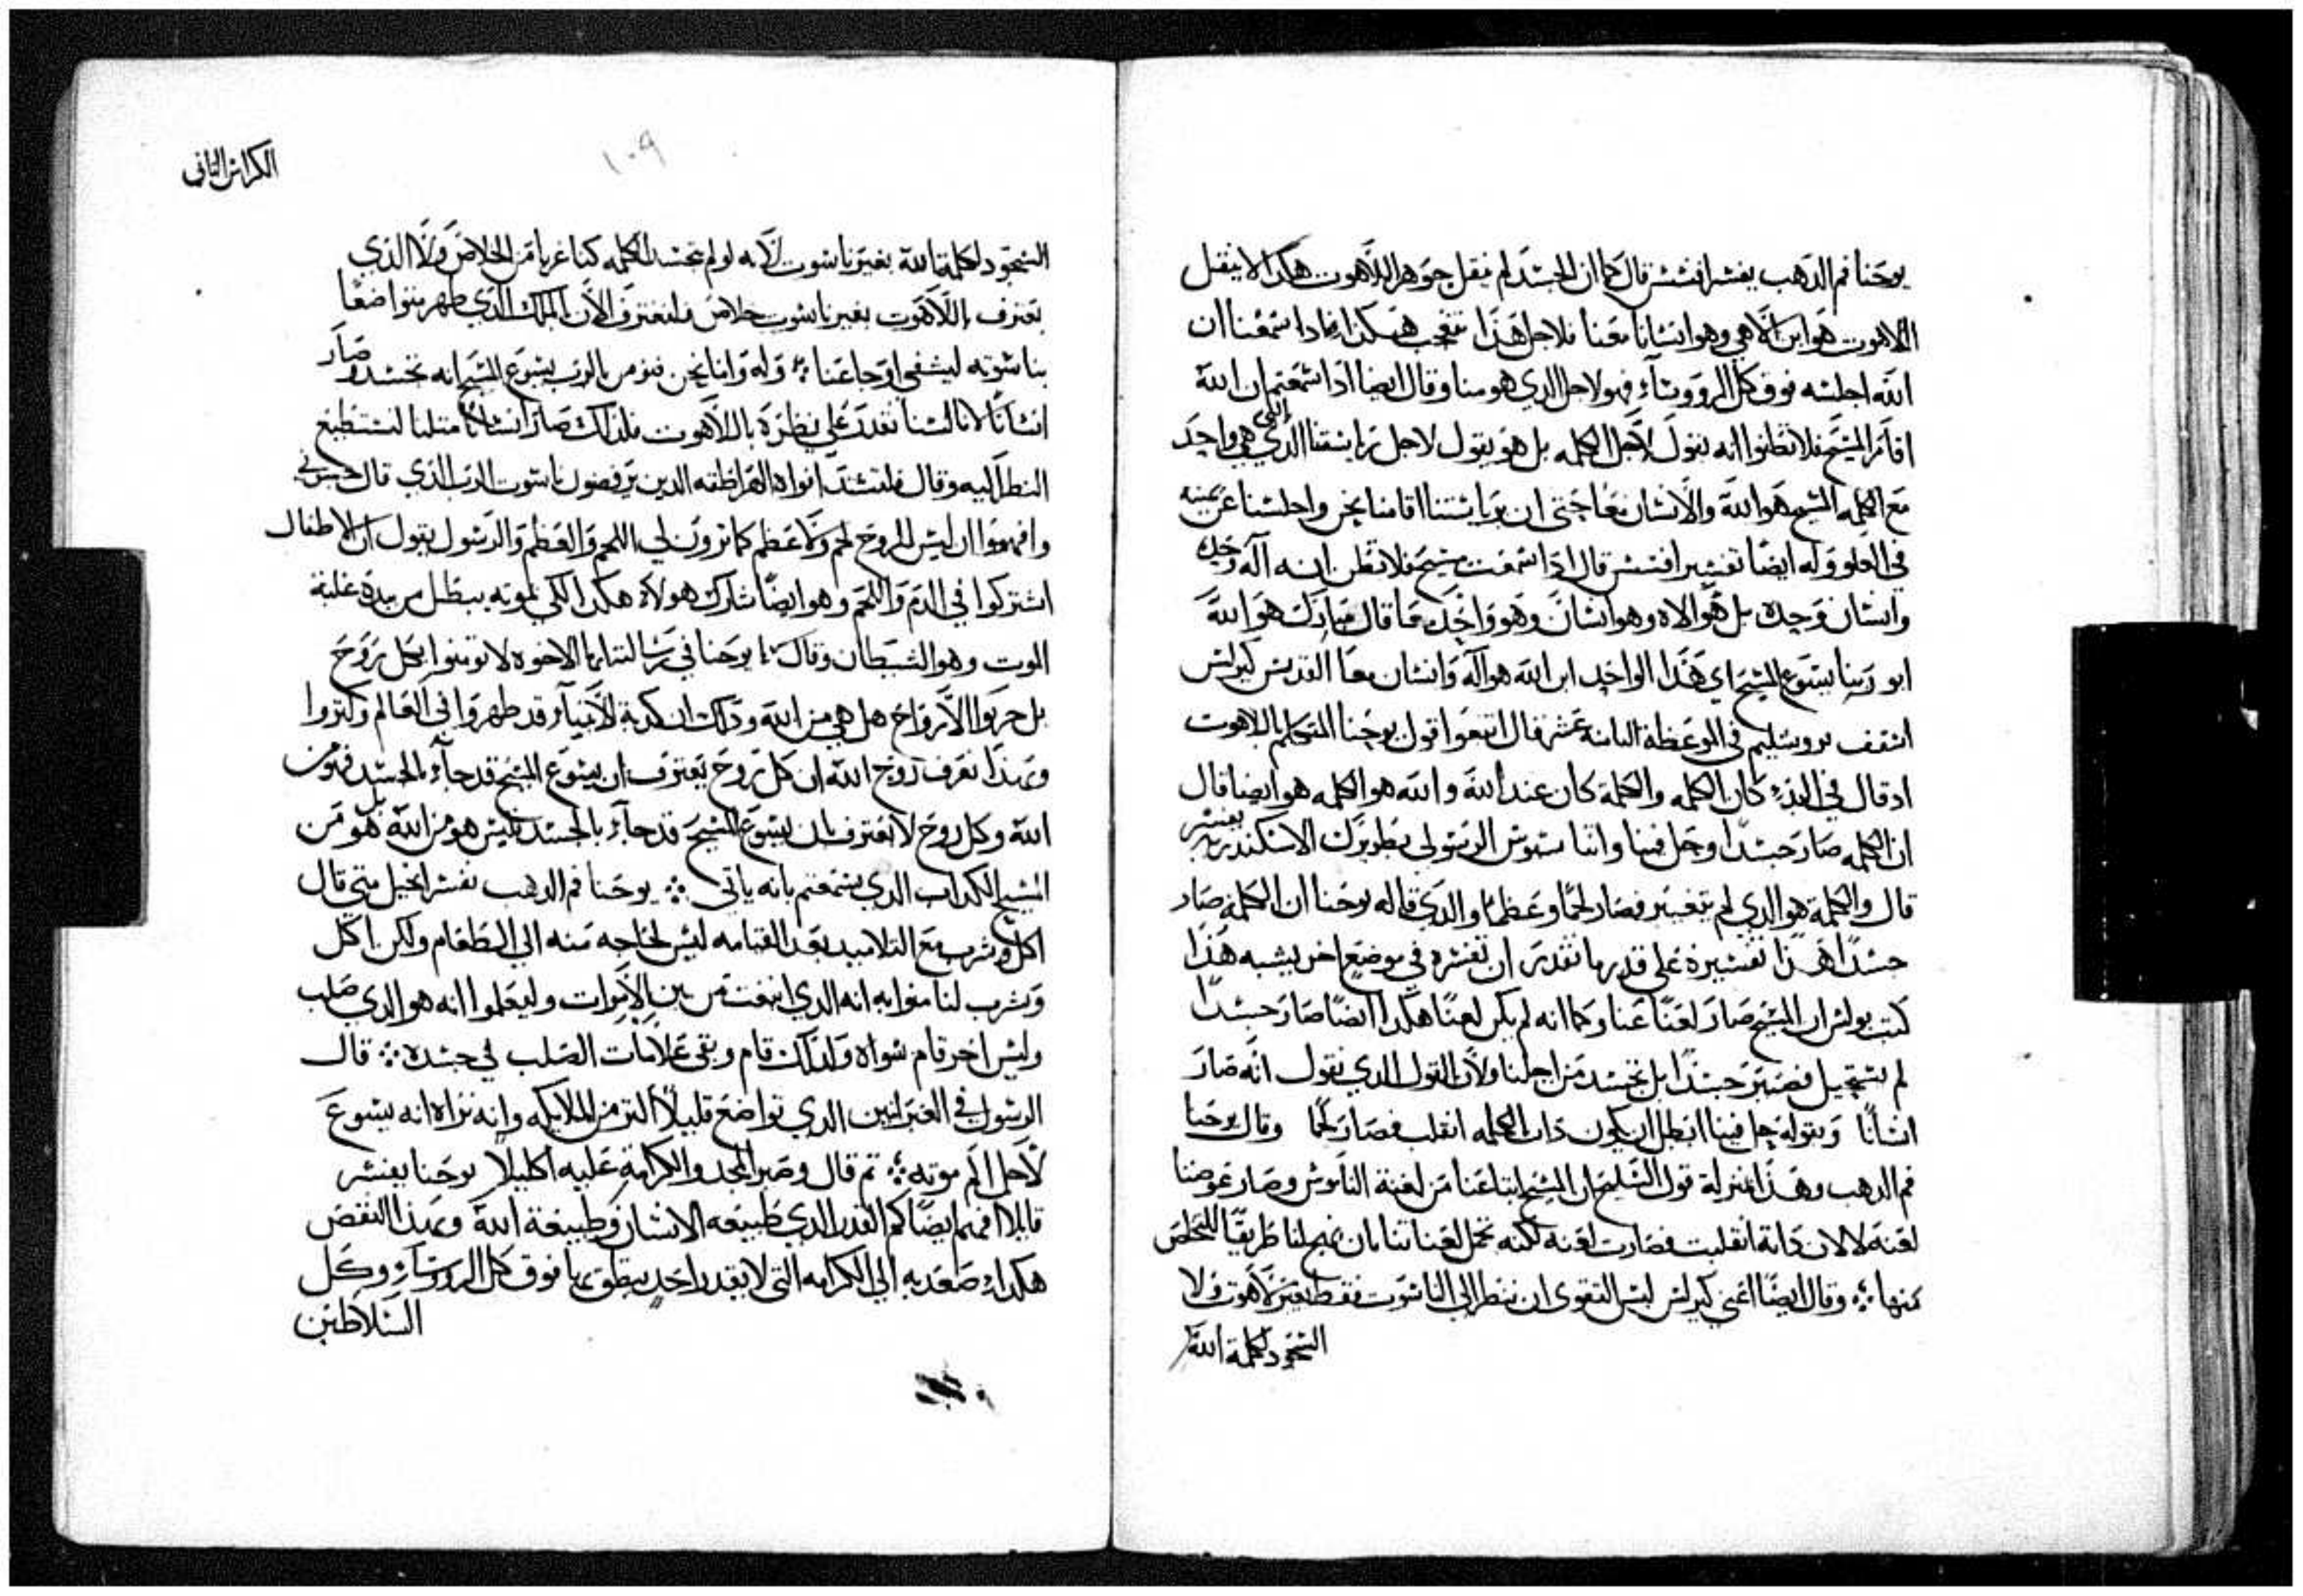 يوحنا فم الدهب يفسر افسس قال كما ان الجسد لم ينقل جوهر اللاهوت هكدا لا ينقل
اللاهوت هو ابن الاهي وهو انسانا معنا فلاجل هذا نتعجب هكدا فادا سمعنا ان
الله اجلسه فوق كل الرووساء فهو لاجل الدي هو منا وقال ايضا ادا سمعتم ان الله
اقام المسيح فلا تظنوا انه يقول لاجل الكلمه بل هو يقول لاجل رياستنا التي هي واحد
مع الكلمه المسيح هو الله والانسان معا حتى ان برياستنا اقامنا نحن واجلسنا عن يمينه
في العلو وله ايضا تفسير افسس قال ادا سمعت مسيح فلا تظن انه آله وحده
وانسان وحده بل هو الاه وهو انسان وهو واحد كما قال مبارك هو الله
ابو ربنا يسوع المسيح اي هذا الواحد ابن الله هو آله وانسان معا القديس كيرلس
اسقف يروسليم في الموعظة التامنة عشر قال اتبعوا قول يوحنا المتكلم باللاهوت
اد قال في البدء كان الكلمه والكلمة كان عند الله والله هو الكلمه هو ايضا قال
ان الكلمه صار جسدا وحل فينا واتناسيوس الرسولي بطريرك الاسكندريه يفسر
قال والكلمة هو الدي لم يتغير فصار لحما وعظما والدي قاله يوحنا ان الكلمة صار
جسدا هذا تفسيره على قدر ما نقدر ان نفسره في موضع اخر يشبه هذا
كتب بولس ان المسيح صار لعنا عنا وكما انه لم يكن لعنا هكدا ايضا صار جسدا
لم يستحيل فصير جسدا بل تجسد من اجلنا ولان القول الدي نقول انه صار
انسانا وبقوله حل فينا ابطل ان يكون دات الكلمه انقلب فصار لحما وقال يوحنا
فم الدهب وهذا بمنزلة قول السليح ان المسيح ابتاعنا من لعنة الناموس وصار عوضنا
لعنه لا لان داته انقلبت فصارت لعنه لكنه تحمل لعناتنا بان نهج لنا طريقا للتخلص
منها ⁘ وقال ايضا اعني كيرلس ليس التقوى ان ننظر الى الناسوت فقط بغير لاهوت ولا
السجود لكلمة الله
الكراس التاني
١٠٩
السجود لكلمة الله بغير ناسوت لانه لو لم تجسد الكلمه كنا غربا من الخلاص ولا الذي
يعترف باللاهوت بغير ناسوت خلاص فلنعترف الان بالملك الذي ظهر متواضعا
بناسوته ليشفي اوجاعنا ⁘ وله واننا نحن نومن بالرب يسوع المسيح انه تجسد وصار
انسانا لاننا لسنا نقدر على نظره باللاهوت فلدلك صار انسانا متلنا لنستطيع
النظر اليه وقال فلتسد افواه الهراطقه الدين يرفضون ناسوت الرب الذي قال جسوني
وافهموا ان ليس للروح لحم ولا عظم كما ترون لي اللحم والعظم والرسول يقول ان الاطفال
اشتركوا في الدم واللحم وهو ايضا شارك هولاء هكدا لكي بموته يبطل من بيده غلبة
الموت وهو الشيطان وقال يوحنا في رسالته ايها الاخوه لا تومنوا بكل روح
بل جربوا الارواح هل هي من الله ودلك ان كدبة الانبياء قد ظهروا في العالم وكتروا
وبهذا نعرف روح الله ان كل روح يعترف ان يسوع المسيح قد جاء بالجسد فهو من
الله وكل روح لا تعترف بان يسوع المسيح قد جاء بالجسد فليس هو من الله بل هو من
المسيح الكداب الدي سمعتم بانه ياتي ⁘ يوحنا فم الدهب تفسر انجيل متى قال
اكل وشرب مع التلاميد بعد القيامه ليس لحاجه منه الي الطعام ولكن اكل
وشرب لنا معا به انه الدي انبعت من بين الاموات وليعلموا انه هو الدي صلب
وليس اخر قام سواه ولدلك قام وبقي علامات الصلب في جسده ⁘ قال
الرسول في العبرانيين الدي تواضع قليلا اكتر من الملايكه وانه نراه انه يسوع
لاجل الم موته ⁘ تم قال وصير المجد والكرامة عليه اكليلا يوحنا يفسر
قايلا افهم ايضا كم القدر الدي طبيعه الانسان وطبيعة الله وبهذا النقص
هكداء صعد به الي الكرامه التي لا يقدر احد ينطق بها فوق كل الرووساء وكل
السلاطين